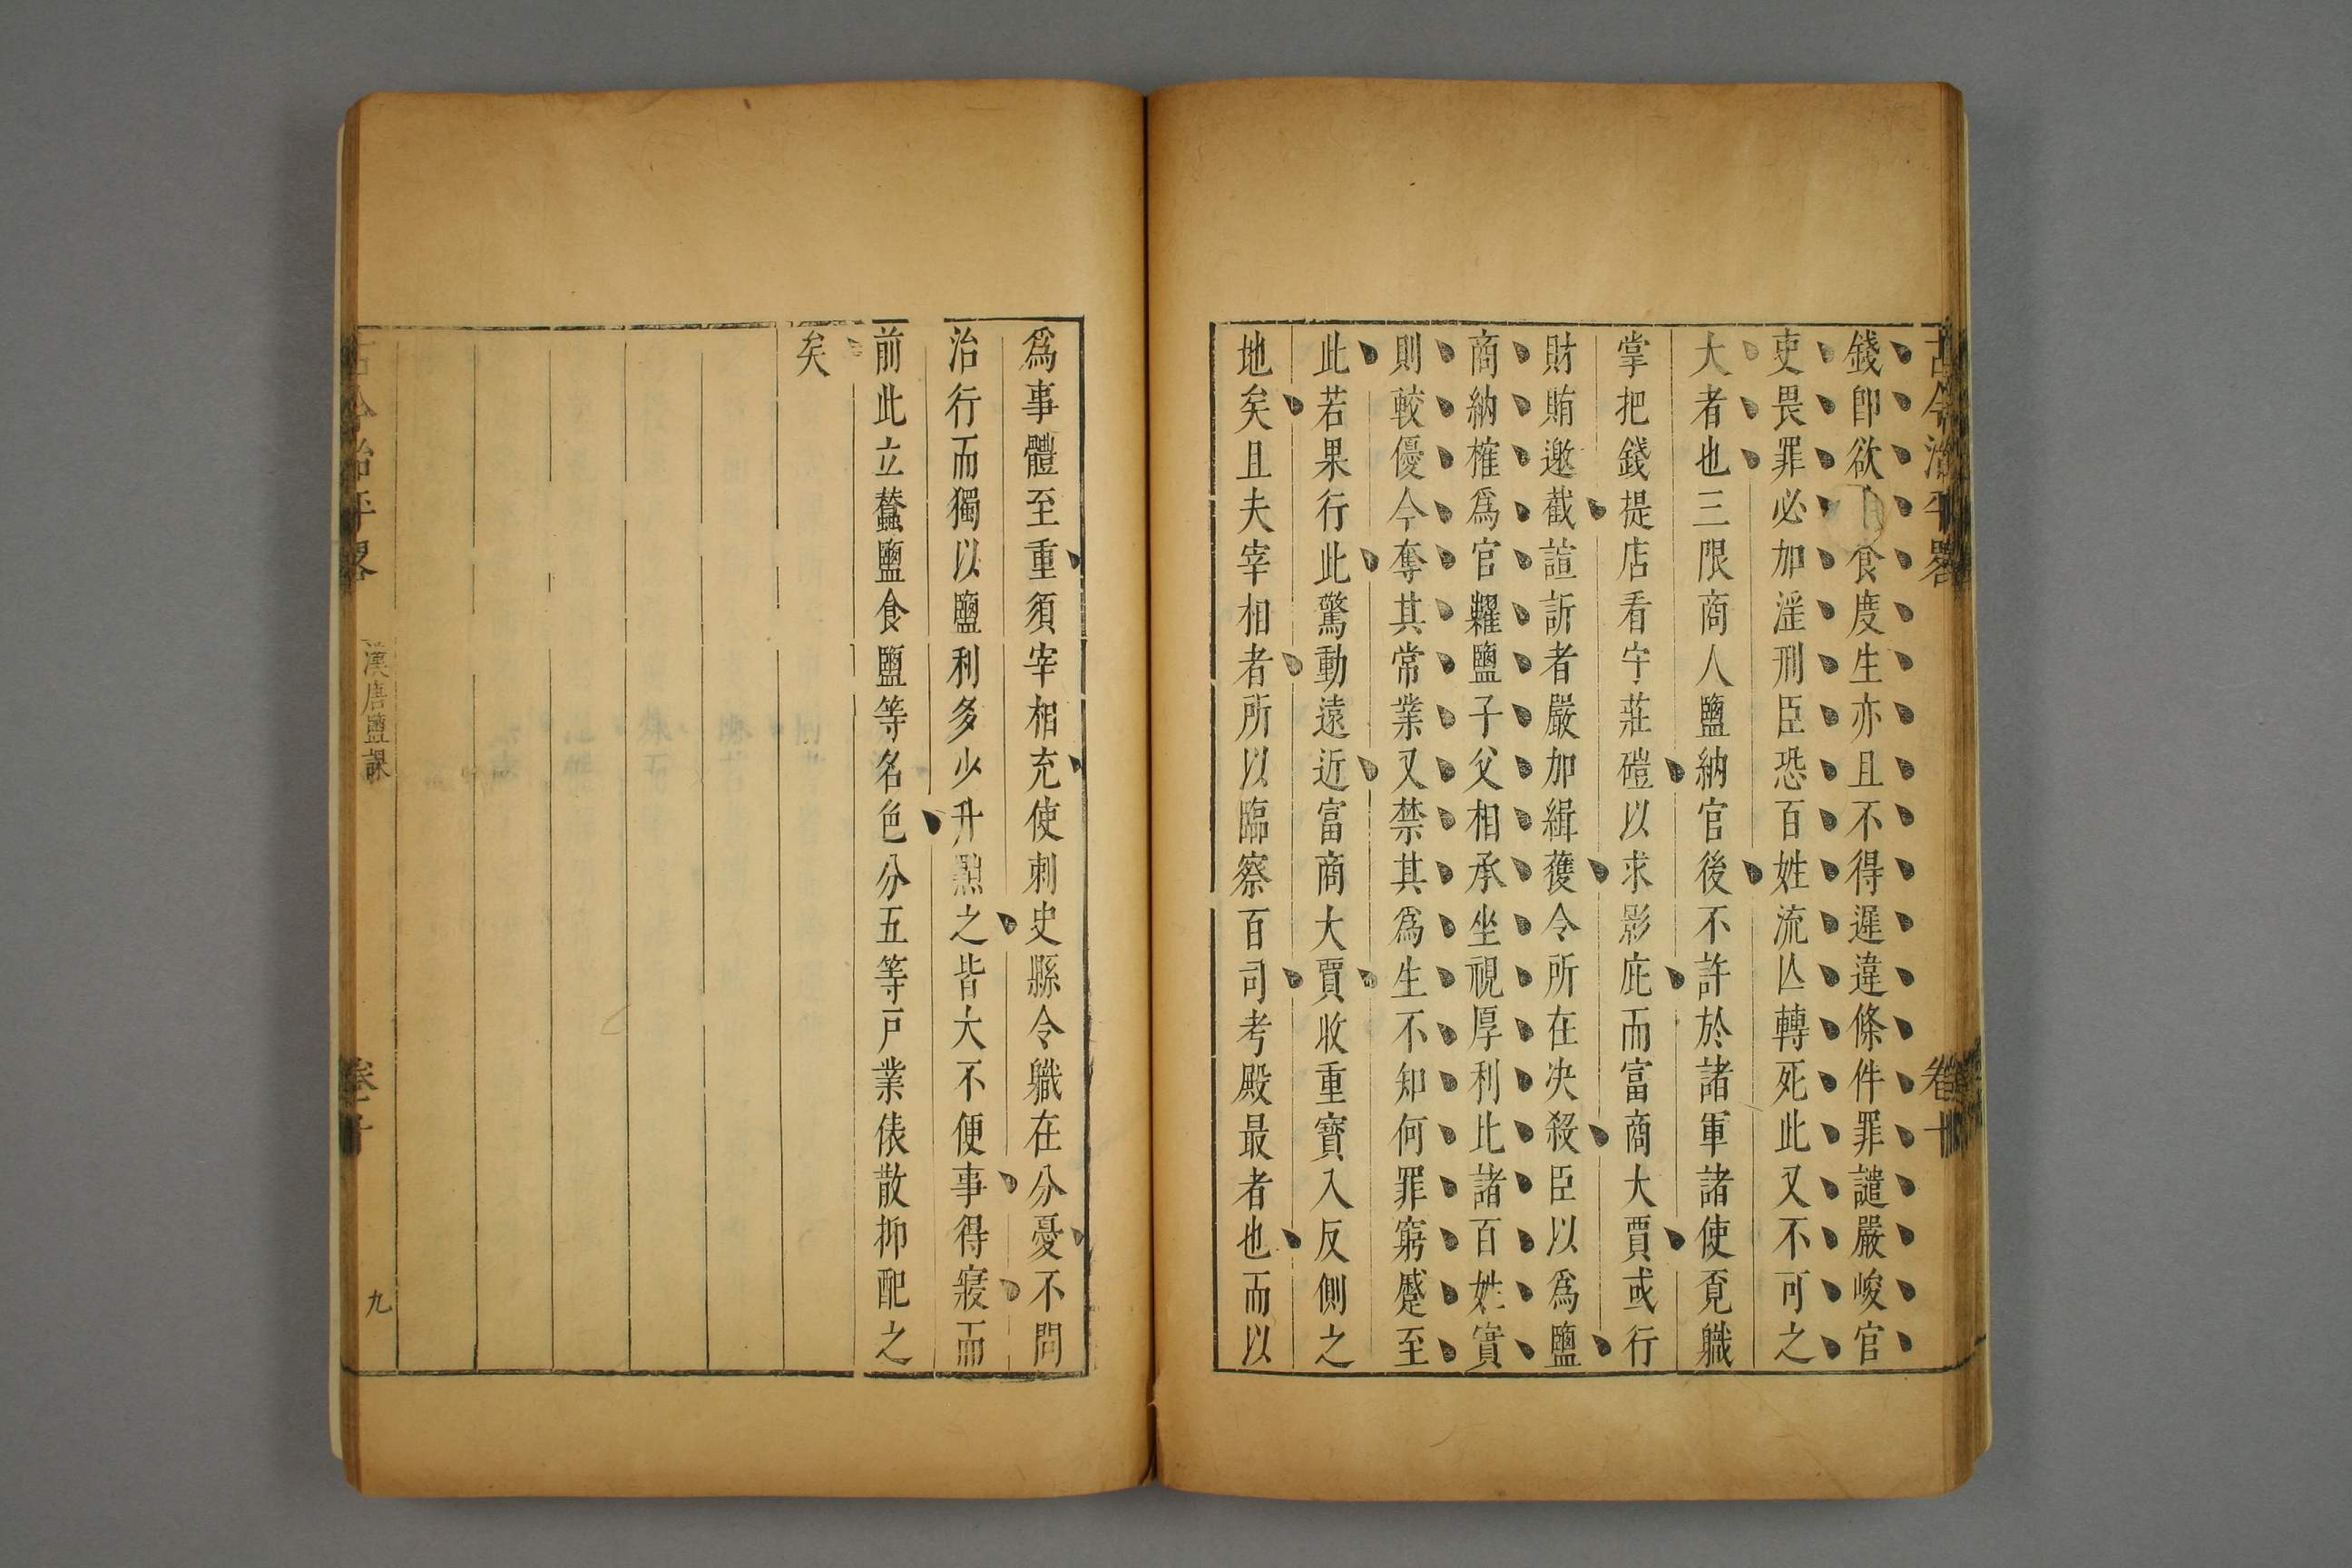 古今治平畧 卷十
錢卽欲食度生亦且不得遲違條件罪譴嚴峻官
吏畏罪必加淫刑臣恐百姓流亾轉死此又不可之
大者也三限商人鹽納官後不許於諸軍諸使覔職
掌把錢提店看守莊磑以求影庇而富商大賈或行
財賄邀截諠訴者嚴加緝獲令所在决殺臣以爲鹽
商納榷爲官糶鹽子父相承坐視厚利比諸百姓實
則較優今奪其常業又禁其爲生不知何罪窮蹙至
此若果行此驚動遠近富商大賈收重寳入反側之
地矣且夫宰相者所以臨察百司考殿最者也而以
爲事體至重須宰相充使刺史縣令職在分憂不問
治行而獨以鹽利多少升黜之皆大不便事得寢而
前此立蠶鹽食鹽等名色分五等戶業俵散抑配之
矣
古今治平畧 漢唐鹽課 卷十 九